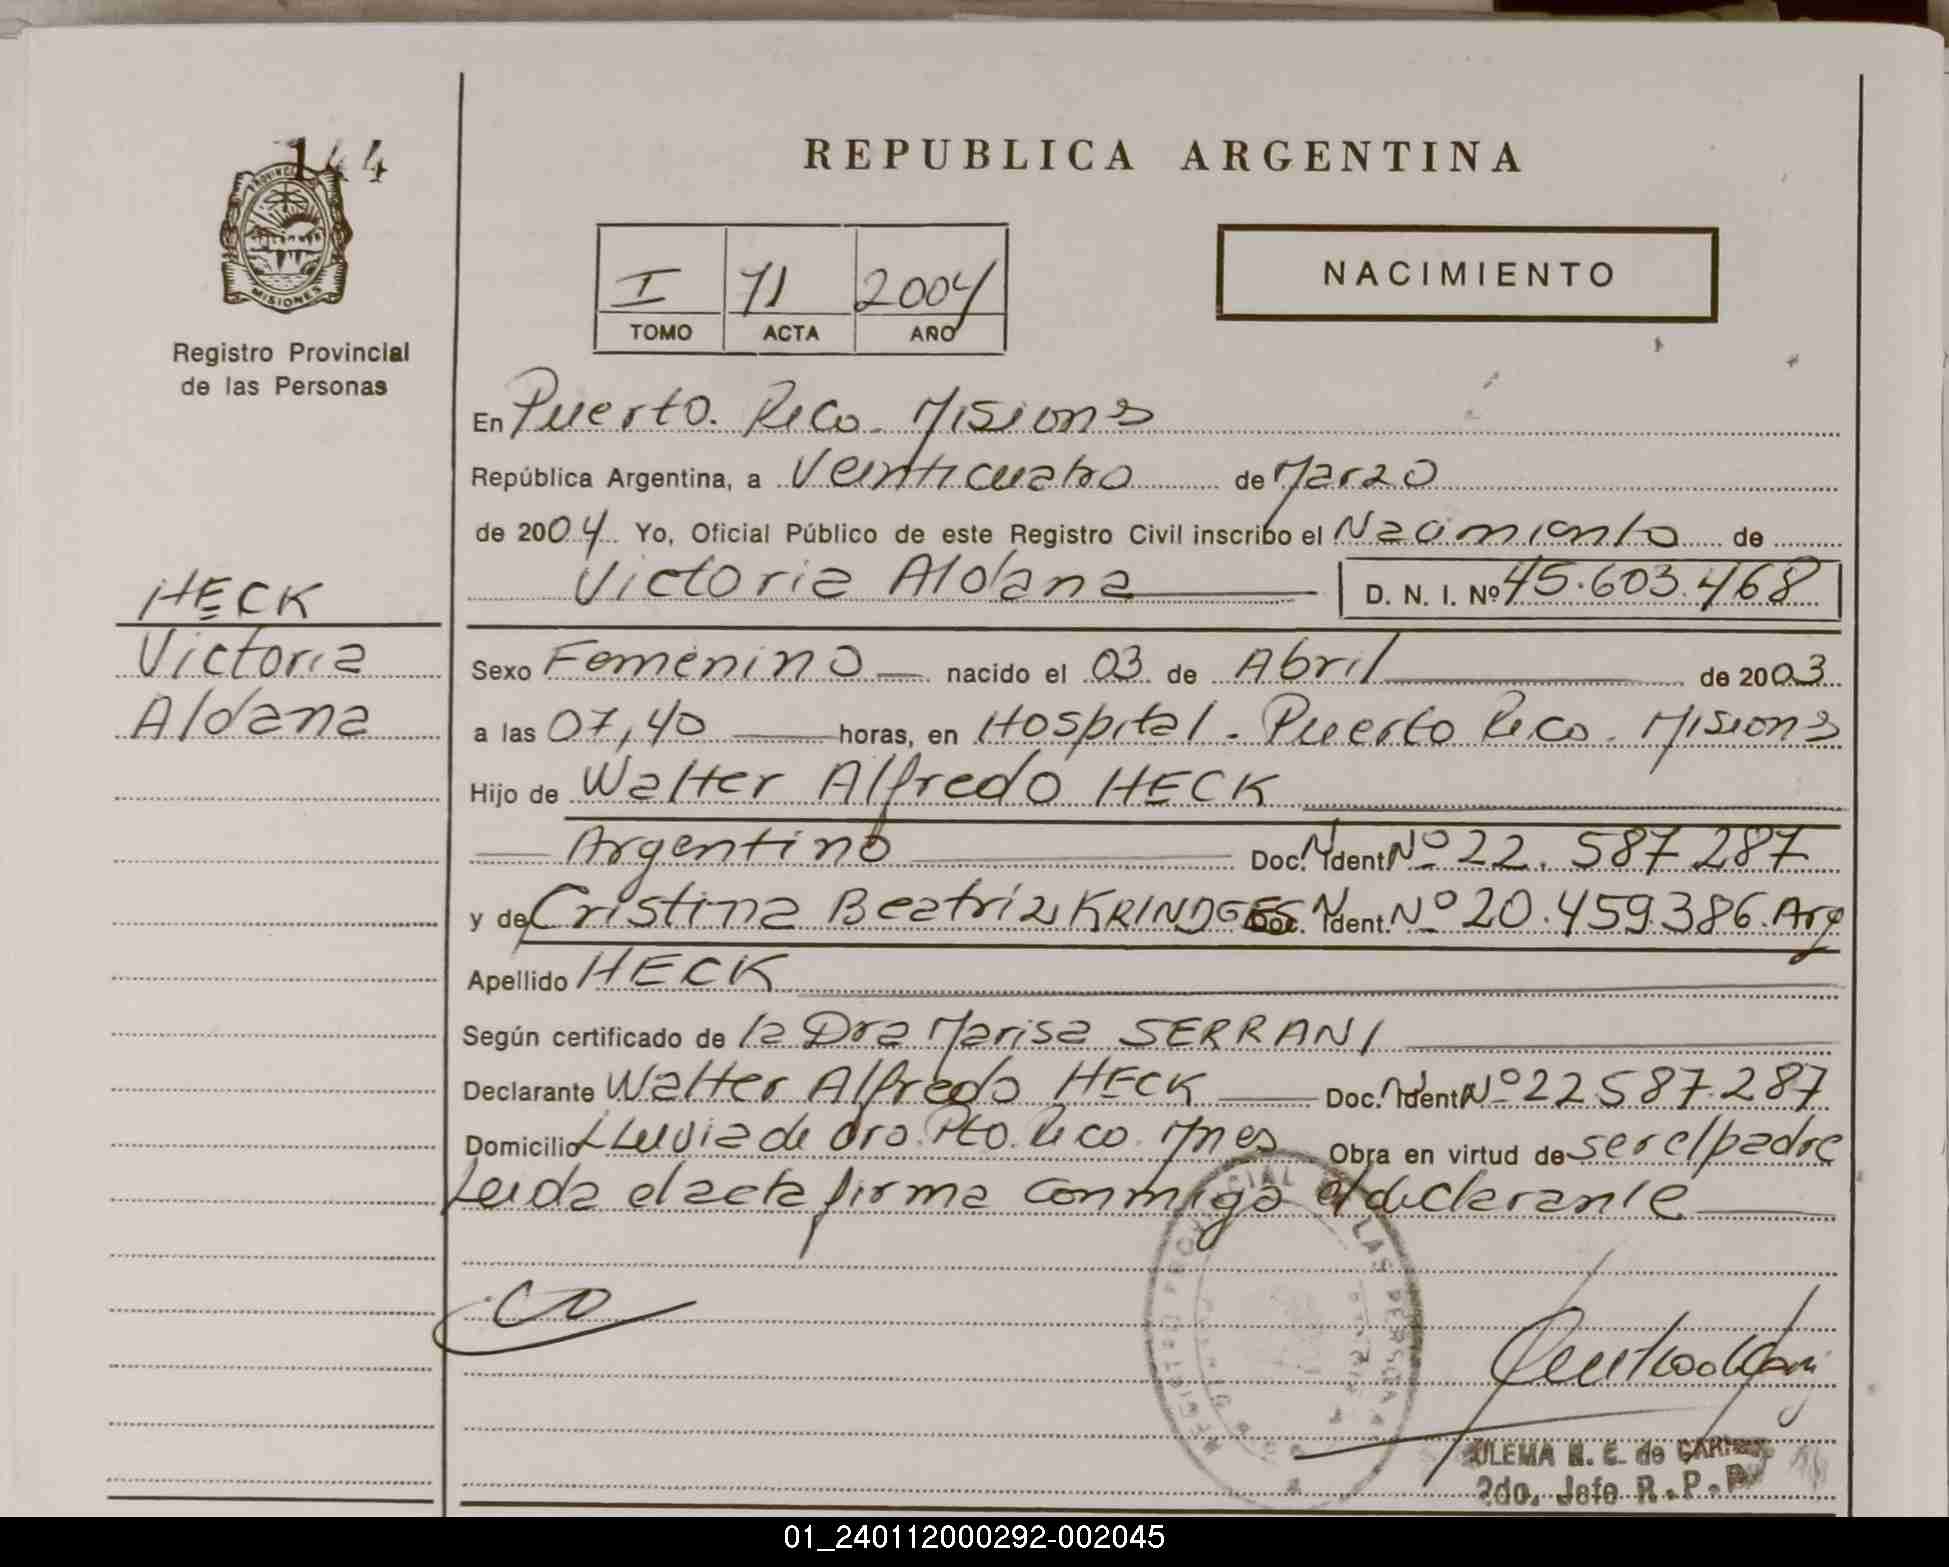 144
PROVINCIA
MISIONES
Registro Provincial
de las Personas
HECK
Victoria
Aldana
REPUBLICA ARGENTINA
I 71 2004
TOMO ACTA AÑO
NACIMIENTO
En Puerto. Rico. Misiones
República Argentina, a Veinticuatro de Marzo
de 2004 Yo, Oficial Público de este Registro Civil inscribo el Nacimiento de
Victoria Aldana D. N. I. Nº 45.603.468
Sexo Femenino nacido el 03 de Abril de 2003
a las 07,40 horas, en Hospital. Puerto Rico. Misiones
Hijo de Walter Alfredo HECK
Argentino Doc. N. Ident Nº 22.587.287
y de Cristina Beatriz KRINDGES Doc. N. Ident. Nº 20.459.386. Arg
Apellido HECK
Según certificado de la Dra Marisa SERRANI
Declarante Walter Alfredo HECK Doc. N. Ident Nº 22587.287
Domicilio Lluvia de oro. Pto. Rico. Mnes Obra en virtud de ser el padre
Leida el acta firma conmigo el declarante
REGISTRO PROVINCIAL DE LAS PERSONAS
ULEMA N. E. de
2do. Jefe R.P.P
01_240112000292-002045